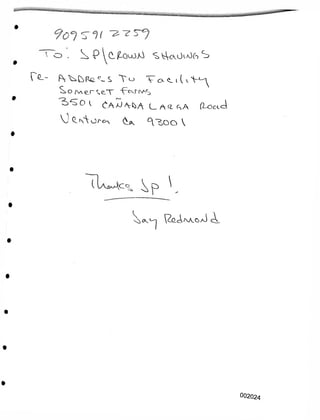 909 591 2259
To: JP/CROWN SHAVINGS
re- ADDRESS TO Facility
Somerset Farms
3501 CAÑADA LARGA Road
Ventura Ca 93001
Thanks Jp!
Jay Redmond
002024